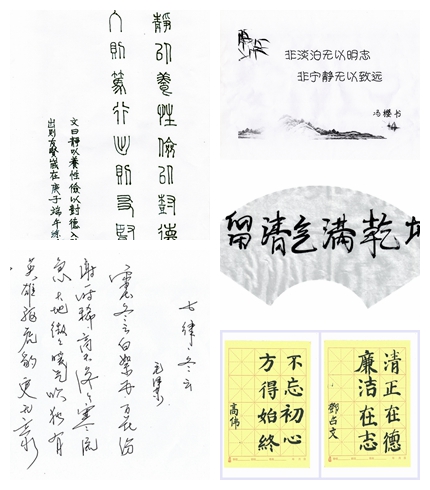 靜以養性儉以對德
入則篤行出則友賢
文曰靜以養性儉以對德入
出則友賢歲在庚子端午
非淡泊无以明志
非宁静无以致远
冯樱书
留清氣满乾
七律·冬云
毛泽东
雪压冬云白絮飞万花纷
谢一时稀高天滚滚寒流
急大地微微暖气吹独有
英雄驱虎豹更无
不忘初心
方得始終
高伟
清正在德
廉洁在志
鄧占文